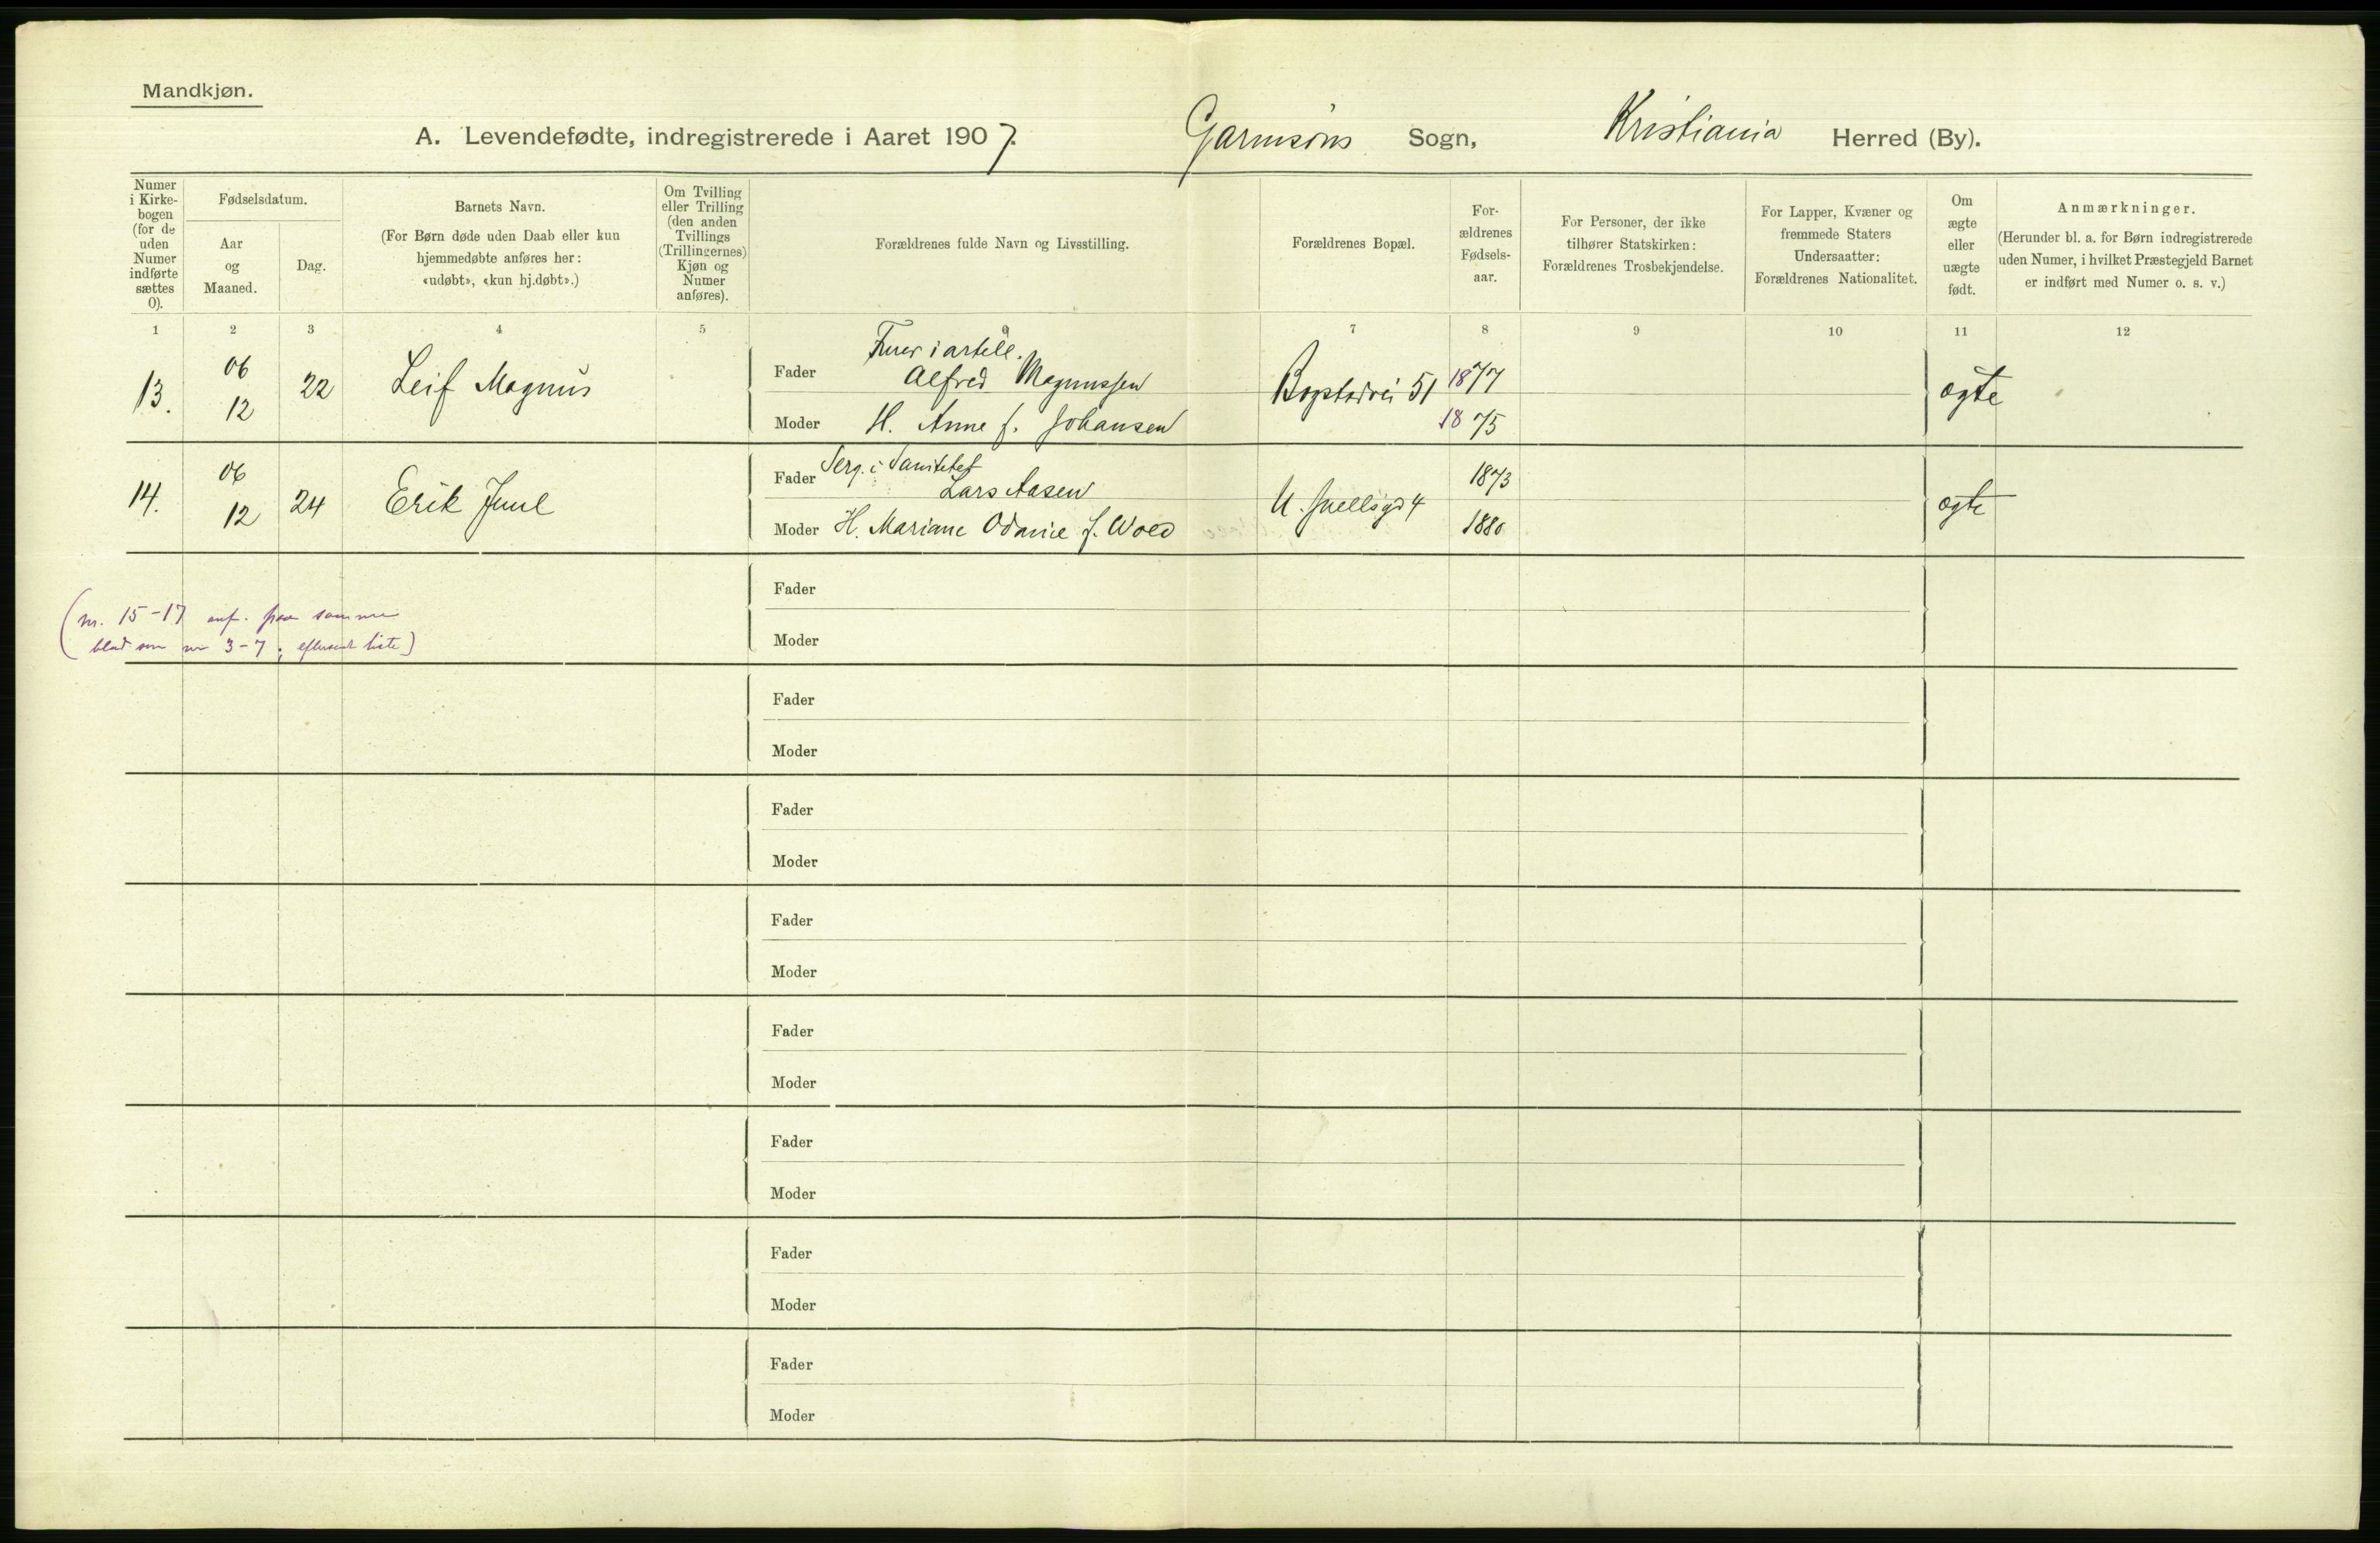 Mandkjøn.
A. Levendefødte, indregistrerede i Aaret 1907. Garnisons Sogn, Kristiania Herred (By).
Numer i Kirke-bogen (for de uden Numer indførte sættes 0).
Fødselsdatum.
Aar og Maaned.
Dag.
Barnets Navn.
(For Børn døde uden Daab eller kun
hjemmedøbte anføres her:
«udøbt», «kun hj.døbt».)
Om Tvilling
eller Trilling
(den anden
Tvillings
(Trillingernes)
Kjøn og
Numer
anføres).
Forældrenes fulde Navn og Livsstilling.
Forældrenes Bopæl.
For-
ældrenes
Fødsels-
aar.
For Personer, der ikke
tilhører Statskirken:
Forældrenes Trosbekjendelse.
For Lapper, Kvæner og
fremmede Staters
Undersaatter:
Forældrenes Nationalitet.
Om
ægte
eller
uægte
født.
Anmærkninger.
(Herunder bl. a. for Børn indregistrerede
uden Numer, i hvilket Præstegjeld Barnet
er indført med Numer o. s. v.)
1 2 3 4 5 6 7 8 9 10 11 12
13. 06 12 22 Leif Magnus
Furer i artill.
Fader Alfred Magnussen
Moder H. Anne f. Johansen
51 1877
1875
ægte
14. 06 12 24 Erik Juul
Serg. i Sanitetet
Fader Lars Aasen
Moder H. Mariane f. Wold
4 1873
1880
ægte
(nr. 15-17 anf. paa samme
blad som nr 3-7; liste)
Fader
Moder
Fader
Moder
Fader
Moder
Fader
Moder
Fader
Moder
Fader
Moder
Fader
Moder
Fader
Moder